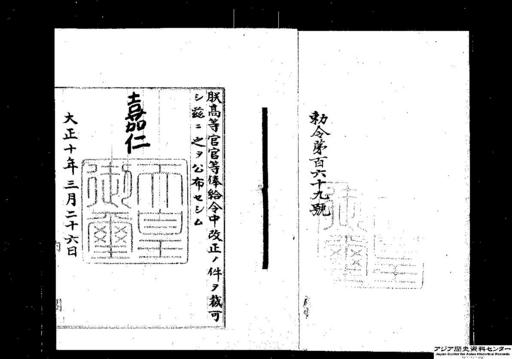 勅令第百六十九號
朕高等官官等俸給令中改正ノ件ヲ裁可
シ茲ニ之ヲ公布セシム
嘉仁
天皇御璽
大正十年三月二十六日
アジア歴史資料センター
Japan Center for Asian Historical Records